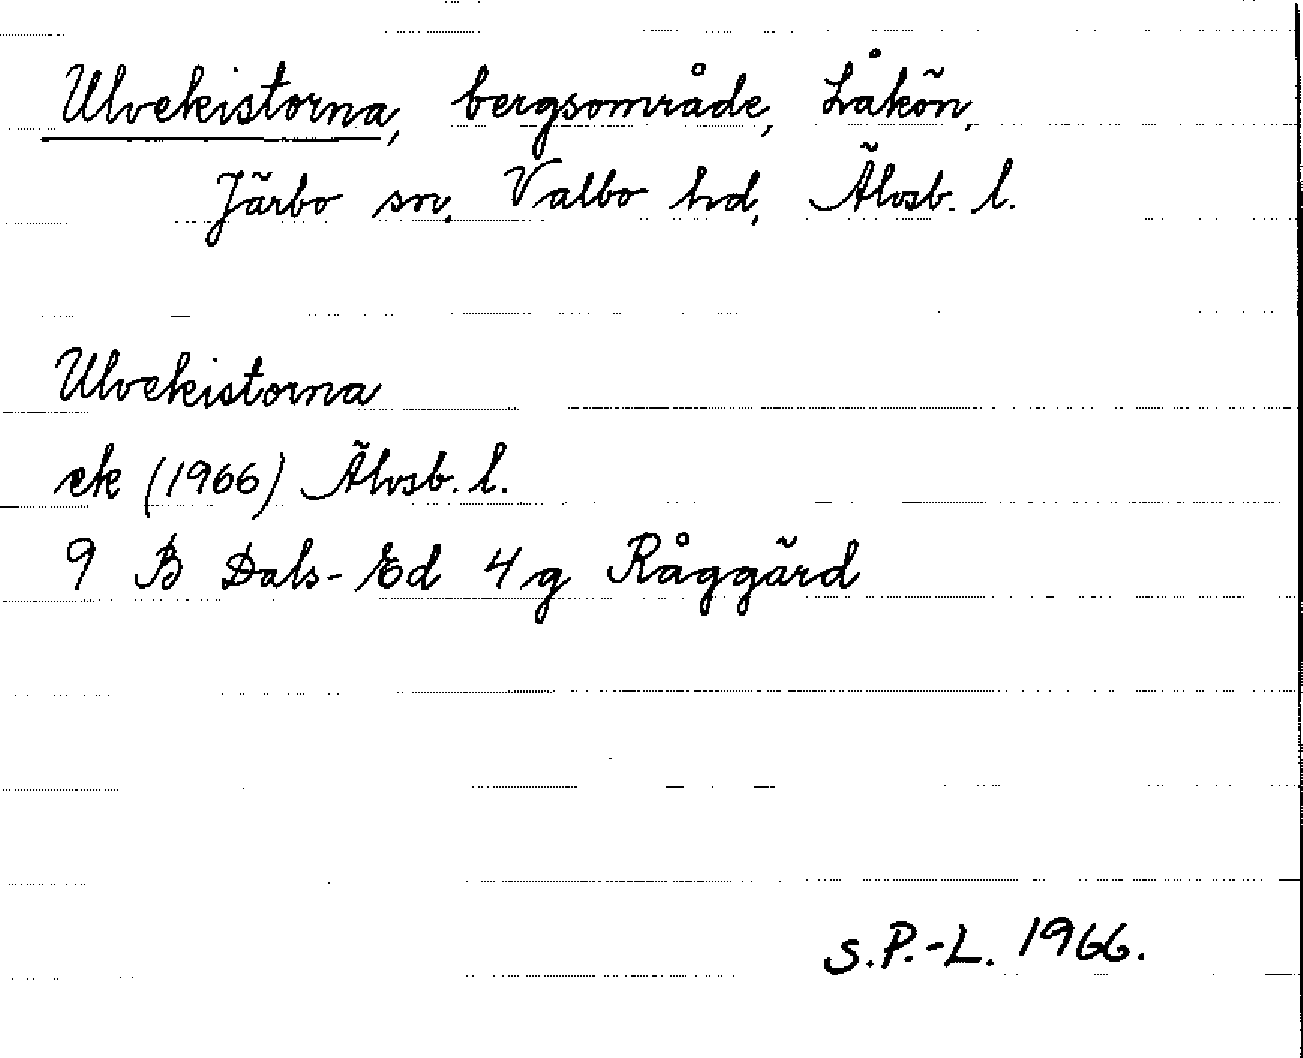 Ulvekistorna, bergsområde, Låkön,
Järbo sn, Valbo hd, Älvsb. l.
Ulvekistorna
ek (1966) Älvsb. l.
9 B Dals-Ed 4 g Råggärd
S.P.-L. 1966.